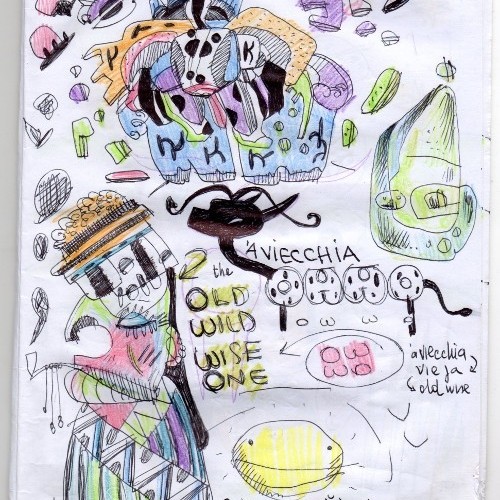 K K
K K K K
'A VIECCHIA
the
OLD
WILD
WISE
ONE
'a viecchia
vieja
old wine